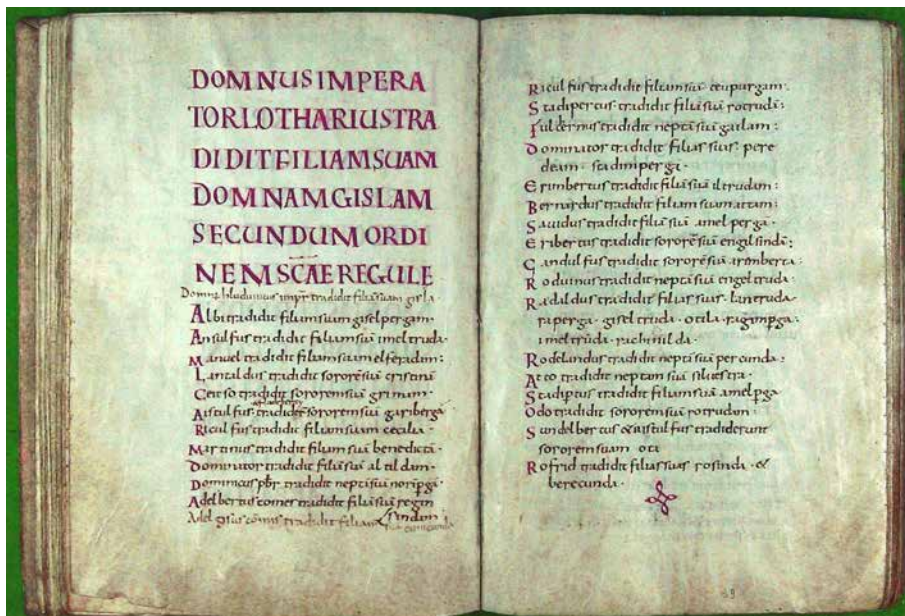 DOMNUS IMPERA
TOR LOTHARIUS TRA
DIDIT FILIAM SUAM
DOMNAM GISLAM
SECUNDUM ORDI
NEM SCAE REGULE
Domnus hluduuicus impr tradidit filiā suam gisla
Albi tradidit filiam suam giselpergam·
Ansulfus tradidit filiā suā imeltruda·
Manuel tradidit filiam suam elferadam:
Lantaldus tradidit sororē suā cristinā
Ceitso tradidit sororem suā grimam·
Aistulfus tradidit sororem suā gariberga
Riculfus tradidit filiam suam cecilia·
Martinus tradidit filiam suā benedictā·
Dominator tradidit filiā suā altildam·
Dominicus pbr tradidit neptā suā norip̄ga·
Adelbertus comes tradidit filiā suā regin
sindam
Adelgisus comis tradidit filiam
Riculfus tradidit filiam suā teupurgam:
Stadipertus tradidit filiā suā rotrudā:
tradidit neptā suā gailam:
Dominator tradidit filias suas· pere
deam· stadimperga·
Erimbertus tradidit filiā suā iltrudam:
Bernardus tradidit filiam suam attam:
Sauidus tradidit filiā suā amelperga·
Eribertus tradidit sororē suā engilsindā:
Gandulfus tradidit sororē suā arimberta:
Roduinus tradidit neptā suā engeltruda·
Radaldus tradidit filias suas· lantruda·
raperga· giseltruda· otila· ragimp̄ga:
imeltrūda· rachinilda·
Rodelandus tradidit neptā suā percunda:
Atto tradidit neptam suā siluestra·
Stadip̄tus tradidit filiam suā amelp̄ga·
Odo tradidit sororem suā rotrudam·
Sundelbertus & aistulfus tradiderunt
sororem suam ota
Rofrid tradidit filias suas rosinda· &
berecunda·